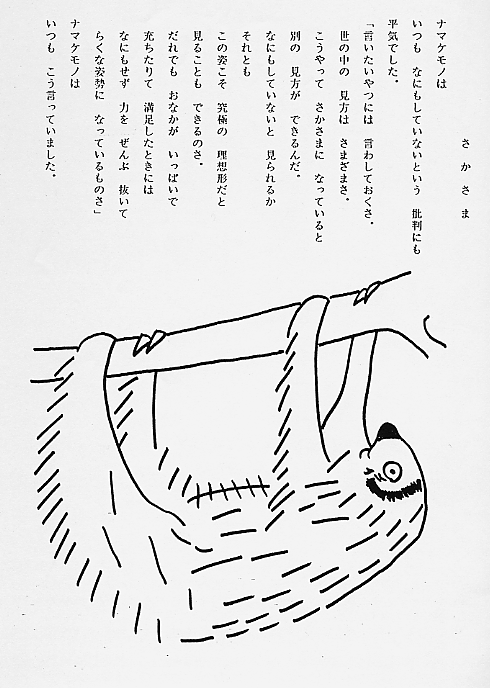 さかさま
ナマケモノは
いつも なにもしていないという 批判にも
平気でした。
「言いたいやつには 言わしておくさ。
世の中の 見方は さまざまさ。
こうやって さかさまに なっていると
別の 見方が できるんだ。
なにもしていないと 見られるか
それとも
この姿こそ 究極の 理想形だと
見ることも できるのさ。
だれでも おなかが いっぱいで
充ちたりて 満足したときには
なにもせず 力を ぜんぶ 抜いて
らくな姿勢に なっているものさ」
ナマケモノは
いつも こう言っていました。